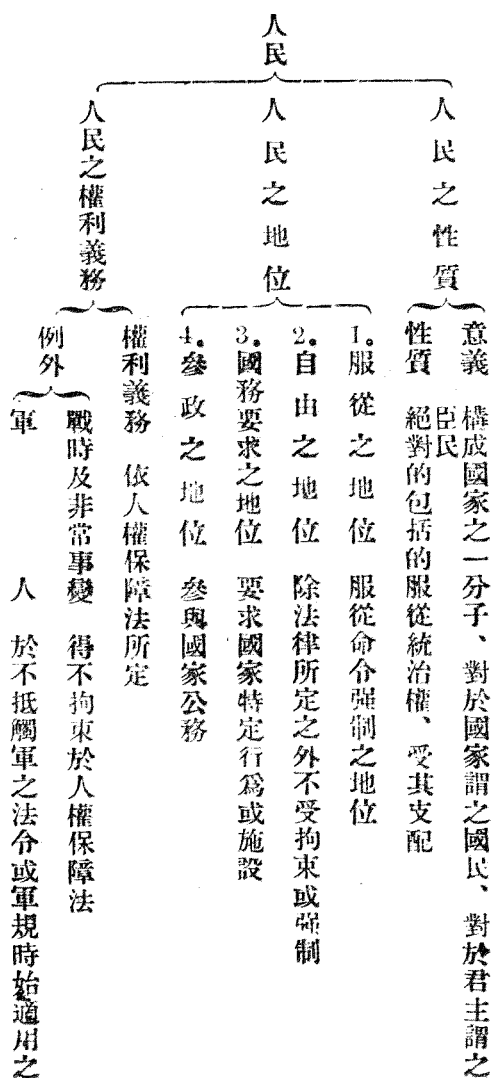 人民
人民之性質
意義　構成國家之一分子、對於國家謂之國民、對於君主謂之
臣民
性質　絕對的包括的服從統治權、受其支配
人民之地位
1。服從之地位　服從命令强制之地位
2。自由之地位　除法律所定之外不受拘束或强制
3。國務要求之地位　要求國家特定行爲或施設
4。參政之地位　參與國家公務
人民之權利義務
權利義務　依人權保障法所定
例外
戰時及非常事變　得不拘束於人權保障法
軍人　於不抵觸軍之法令或軍規時始適用之